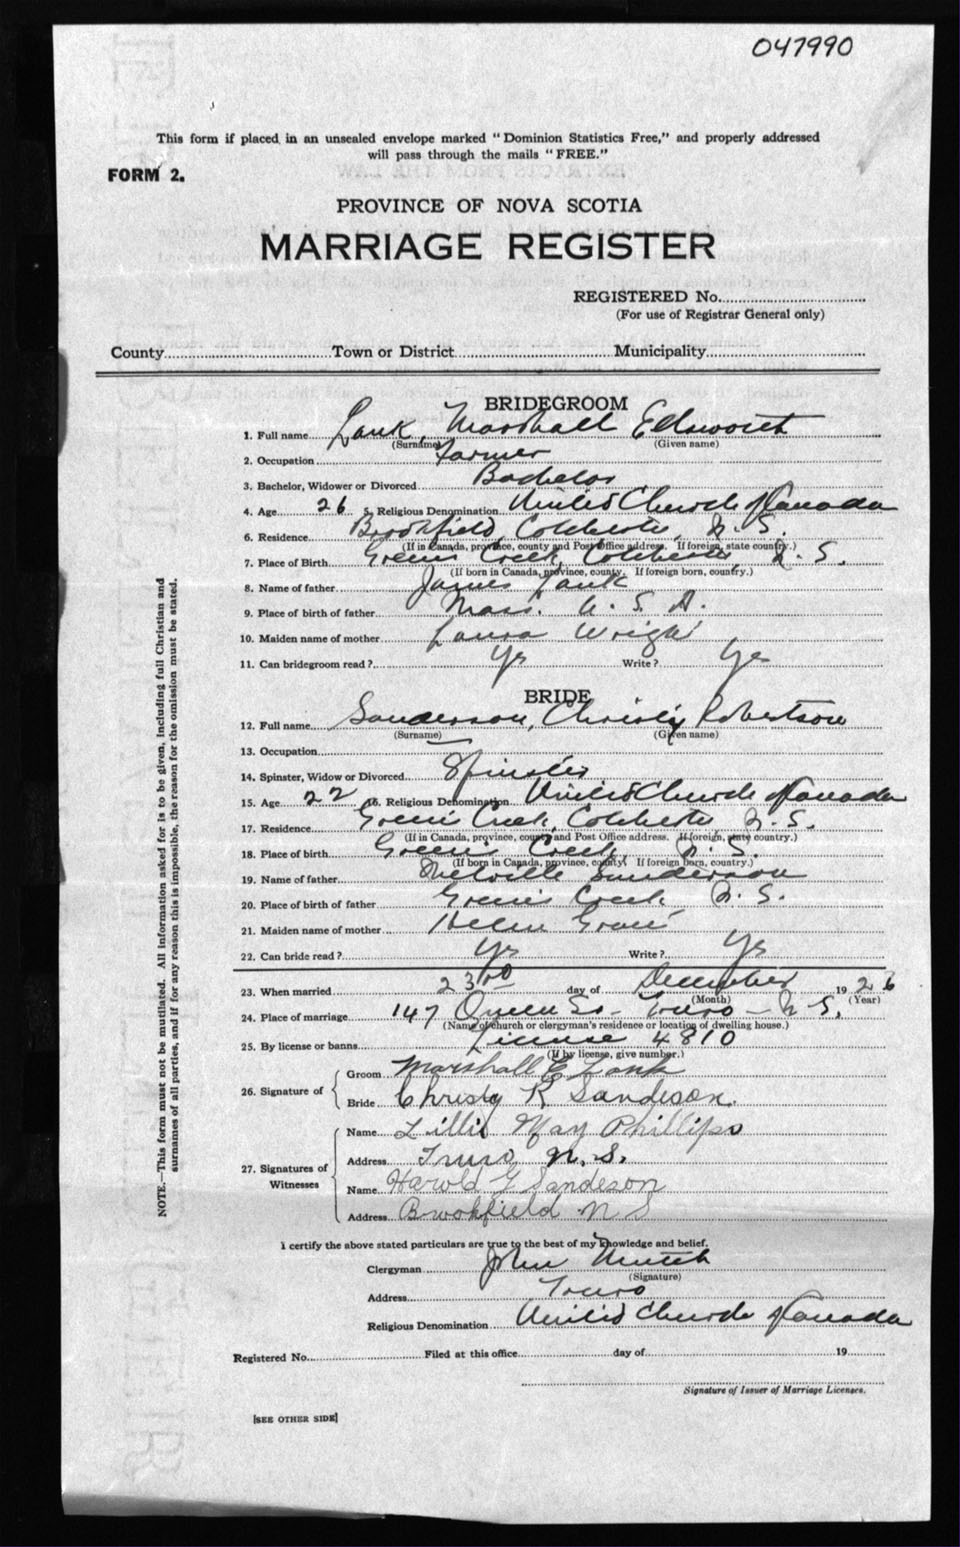 047990
This form if placed in an unsealed envelope marked "Dominion Statistics Free," and properly addressed
will pass through the mails "FREE."
FORM 2.
PROVINCE OF NOVA SCOTIA
MARRIAGE REGISTER
REGISTERED No.
(For use of Registrar General only)
County Town or District Municipality
BRIDEGROOM
1. Full name Lank, Marshall Ellsworth
(Surname) (Given name)
2. Occupation Farmer
3. Bachelor, Widower or Divorced Bachelor
4. Age 26 5. Religious Denomination United Church of Canada
6. Residence Brookfield Colchester, N. S.
(If in Canada, province, county and Post Office address. If foreign, state country.)
7. Place of Birth Greens Creek, Colchester, N. S.
(If born in Canada, province, county. If foreign born, country.)
8. Name of father James Lank
9. Place of birth of father Mass. U. S. A.
10. Maiden name of mother Laura Wright
11. Can bridegroom read? Yes Write? Yes
BRIDE
12. Full name Sanderson, Christy Robertson
(Surname) (Given name)
13. Occupation —
14. Spinster, Widow or Divorced Spinster
15. Age 22 16. Religious Denomination United Church of Canada
17. Residence Greens Creek, Colchester N. S.
(If in Canada, province, county and Post Office address. If foreign, state country.)
18. Place of birth Greens Creek, N. S.
(If born in Canada, province, county. If foreign born, country.)
19. Name of father Melville Sanderson
20. Place of birth of father Greens Creek N. S.
21. Maiden name of mother Helen
22. Can bride read? Yes Write? Yes
23. When married 23rd day of December 1926
(Month) (Year)
24. Place of marriage 147 Queen St - Truro - N S.
(Name of church or clergyman's residence or location of dwelling house.)
25. By license or banns License 4810
(If by license, give number.)
26. Signature of Groom Marshall E Lank
Bride Christy R Sandeson.
27. Signatures of Witnesses Name Lillie May Phillips
Address Truro N. S.
Name Harold G Sandeson
Address Brookfield N S
I certify the above stated particulars are true to the best of my knowledge and belief.
Clergyman John Mutch
(Signature)
Address Truro
Religious Denomination United Church of Canada
Registered No. Filed at this office day of 19
Signature of Issuer of Marriage Licenses.
[SEE OTHER SIDE]
NOTE.—This form must not be mutilated. All information asked for is to be given, including full Christian and
surnames of all parties, and if for any reason this is impossible, the reason for the omission must be stated.